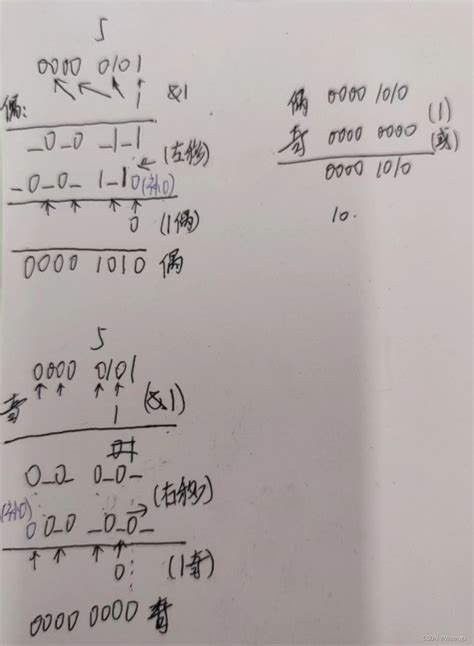 5
0000 0101
偶: 1 &1
_0_0 _1_1
(左移)
_0_0_ 1_10(补0)
0 (1偶)
0000 1010 偶
偶 0000 1010
奇 0000 0000 (1) (或)
0000 1010
10.
5
0000 0101
奇 1 (&1)
0_0_ 0_0_
(右移)
(补0) 0_0_0 _0_0_
0 (1奇)
0000 0000 奇